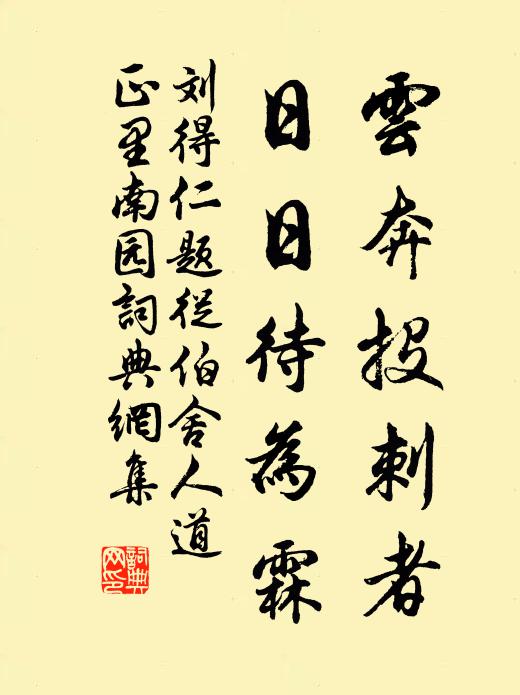 雲奔投刺者
日日待為霖
刘得仁題從伯舍人道
正里南园詞典網集
詞典网印